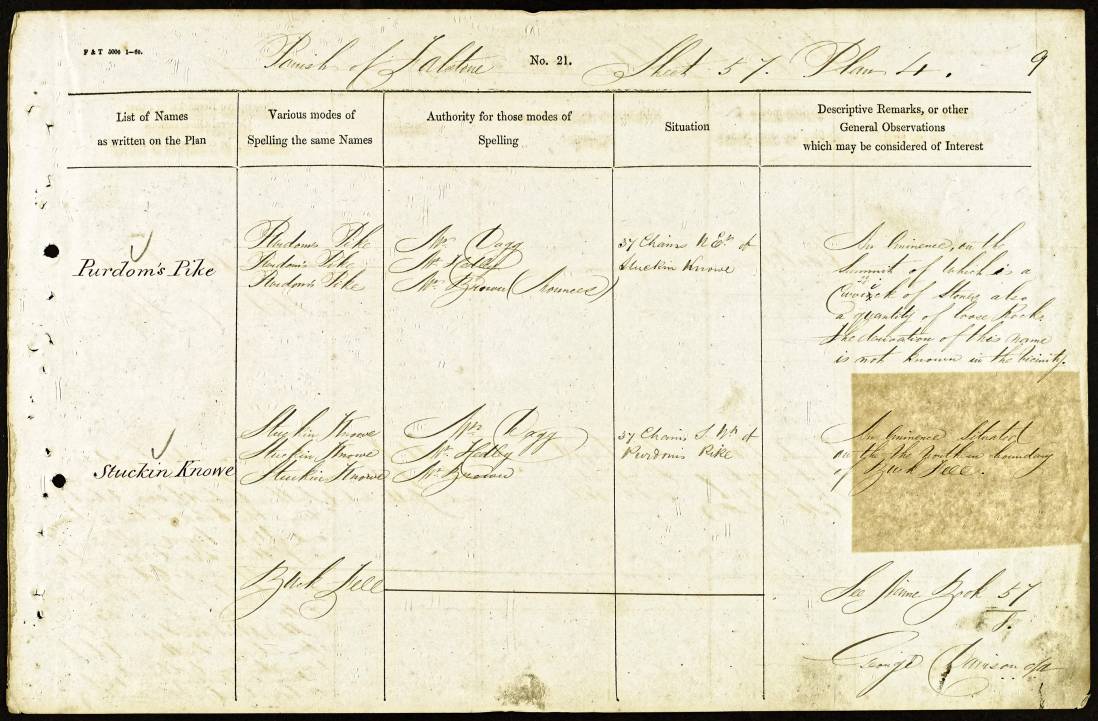 F & T 5000 1–60.
Parish of Falstone No. 21. Sheet 57. Plan 4. 9
List of Names
as written on the Plan
Various modes of
Spelling the same Names
Authority for those modes of
Spelling
Situation
Descriptive Remarks, or other
General Observations
which may be considered of Interest
Purdom's Pike
Purdom's Pike
Purdom's Pike
Purdom's Pike
Mr. Dagg
Mr. Hedley
Mr. Brown
37 Chains N.E. of
Stuckin Knowe
An Eminence, on the
Summit of which is a
of Stones also
a quantity of loose Rocks
The derivation of this name
is not known in the vicinity.
Stuckin Knowe
Stuckin Knowe
Stuckin Knowe
Stuckin Knowe
Mr. Dagg
Mr. Hedley
Mr. Brown
37 Chains S.W. of
Purdom's Pike
An Eminence situated
on the the Northern boundary
of Buck Fell.
Buck Fell
See Name Book 57
George